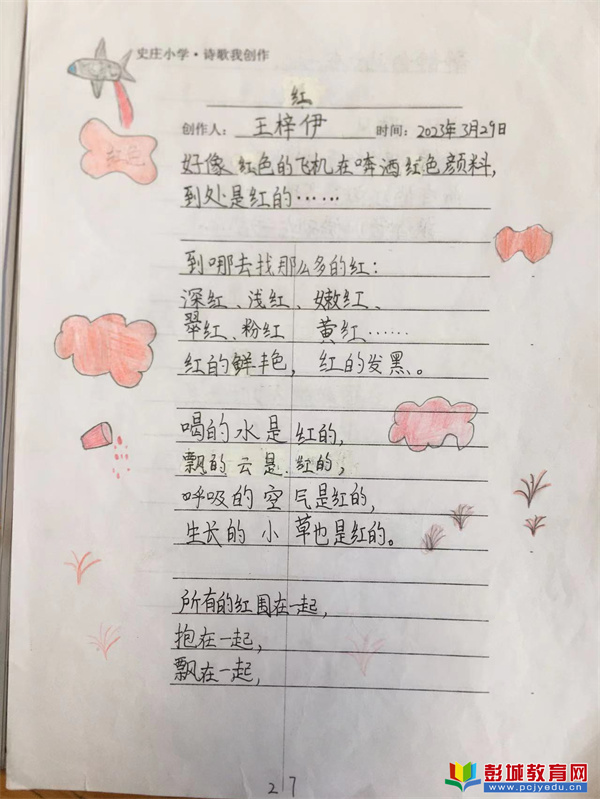 史庄小学·诗歌我创作
红
创作人：王梓伊 时间：2023年3月29日
红色
好像红色的飞机在喷洒红色颜料，
到处是红的……
到哪去找那么多的红：
深红、浅红、嫩红、
翠红、粉红 黄红……
红的鲜丰色，红的发黑。
喝的水是红的，
飘的云是红的，
呼吸的空气是红的，
生长的小草也是红的。
所有的红围在一起，
抱在一起，
飘在一起，
27
彭城教育网
www.pcjyedu.cn